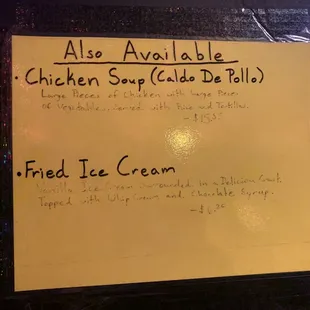 Also Available
• Chicken Soup (Caldo De Pollo)
Large Pieces of Chicken with Large Pieces
of Vegetable served with Rice and Tortillas
- $15
• Fried Ice Cream
Vanilla Ice Cream surrounded in a Delicious Crust.
Topped with Whip Cream and Chocolate Syrup.
- $6